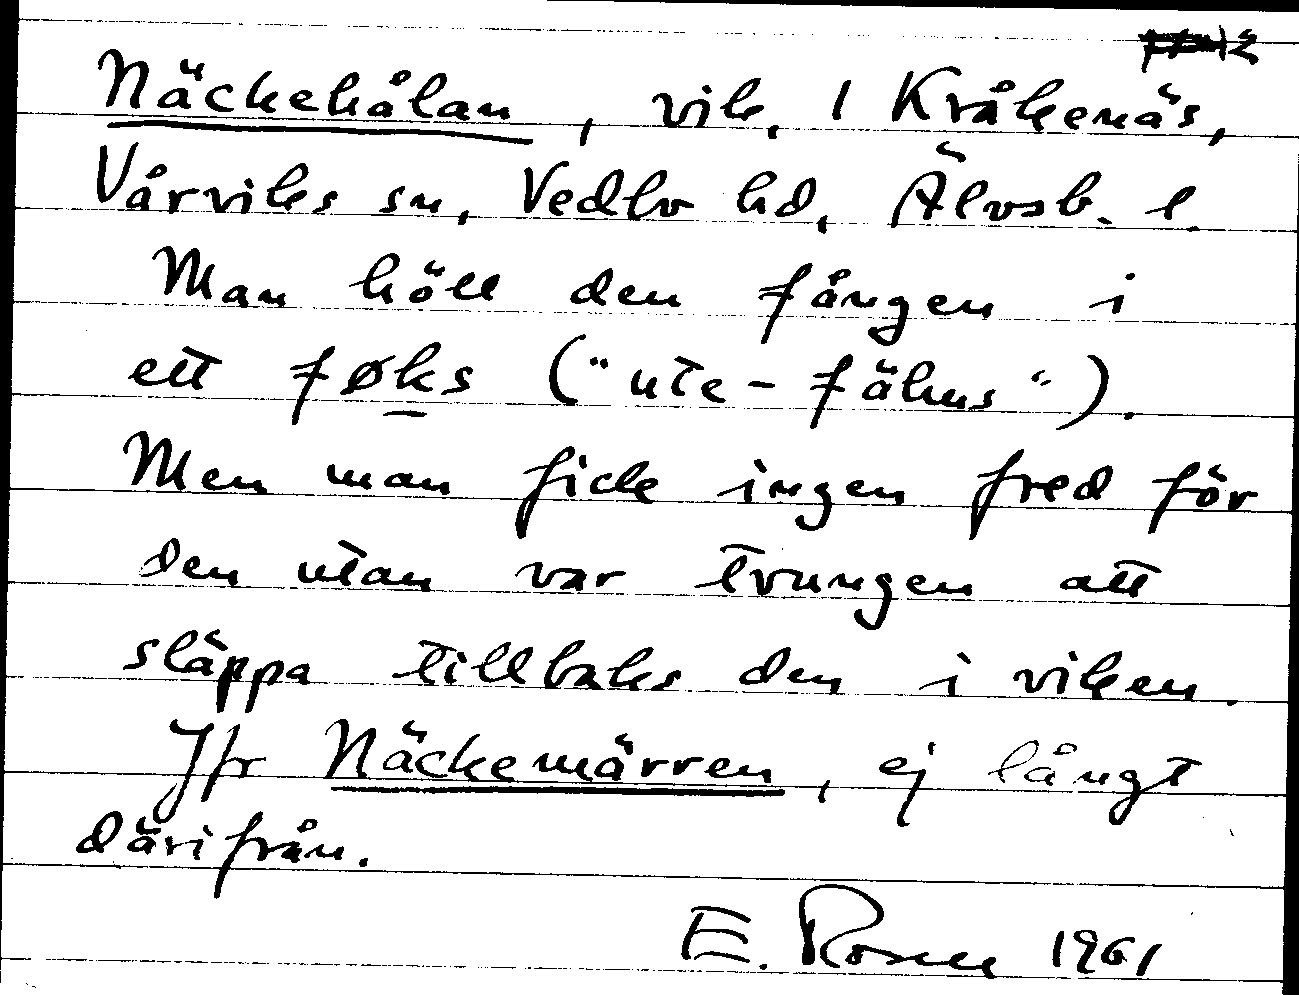 Näckehålan, vik, 1 Kråkenäs,
Vårviks sn, Vedbo hd, Älvsb. l.
Man höll den fången i
ett føks ("ute-fähus").
Men man fick ingen fred för
den utan var tvungen att
släppa tillbaks den i viken.
Jfr Näckemärren, ej långt
därifrån.
E. Rosen 1961